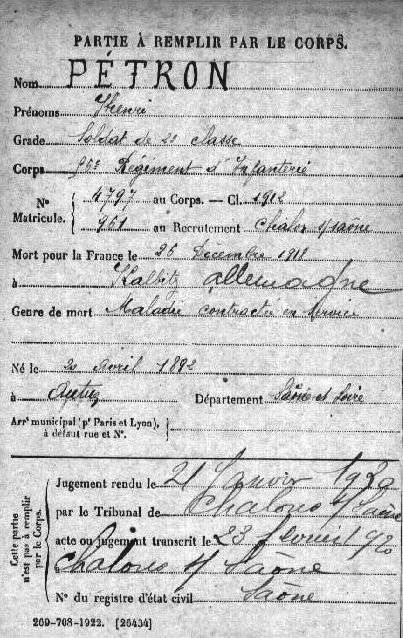 PARTIE À REMPLIR PAR LE CORPS.
Nom PÉTRON
Prénoms Henri
Grade Soldat de 2e classe
Corps Régiment d'Infanterie
Nº 4797 au Corps. — Cl. 1912
Matricule. 961 au Recrutement Chalon s/Saône
Mort pour la France le 25 Décembre 1918
à allemagne
Genre de mort Maladie contractée en service
Né le avril 1892
à Département Saône et Loire
Arrt municipal (pr Paris et Lyon), à défaut rue et Nº.
Cette partie n'est pas à remplir par le Corps.
Jugement rendu le 21 Janvier 1920
par le Tribunal de Chalons s/ Saône
acte ou jugement transcrit le 23 920
Chalons s/ Saône
Nº du registre d'état civil Saône
269-708-1922. [26434]